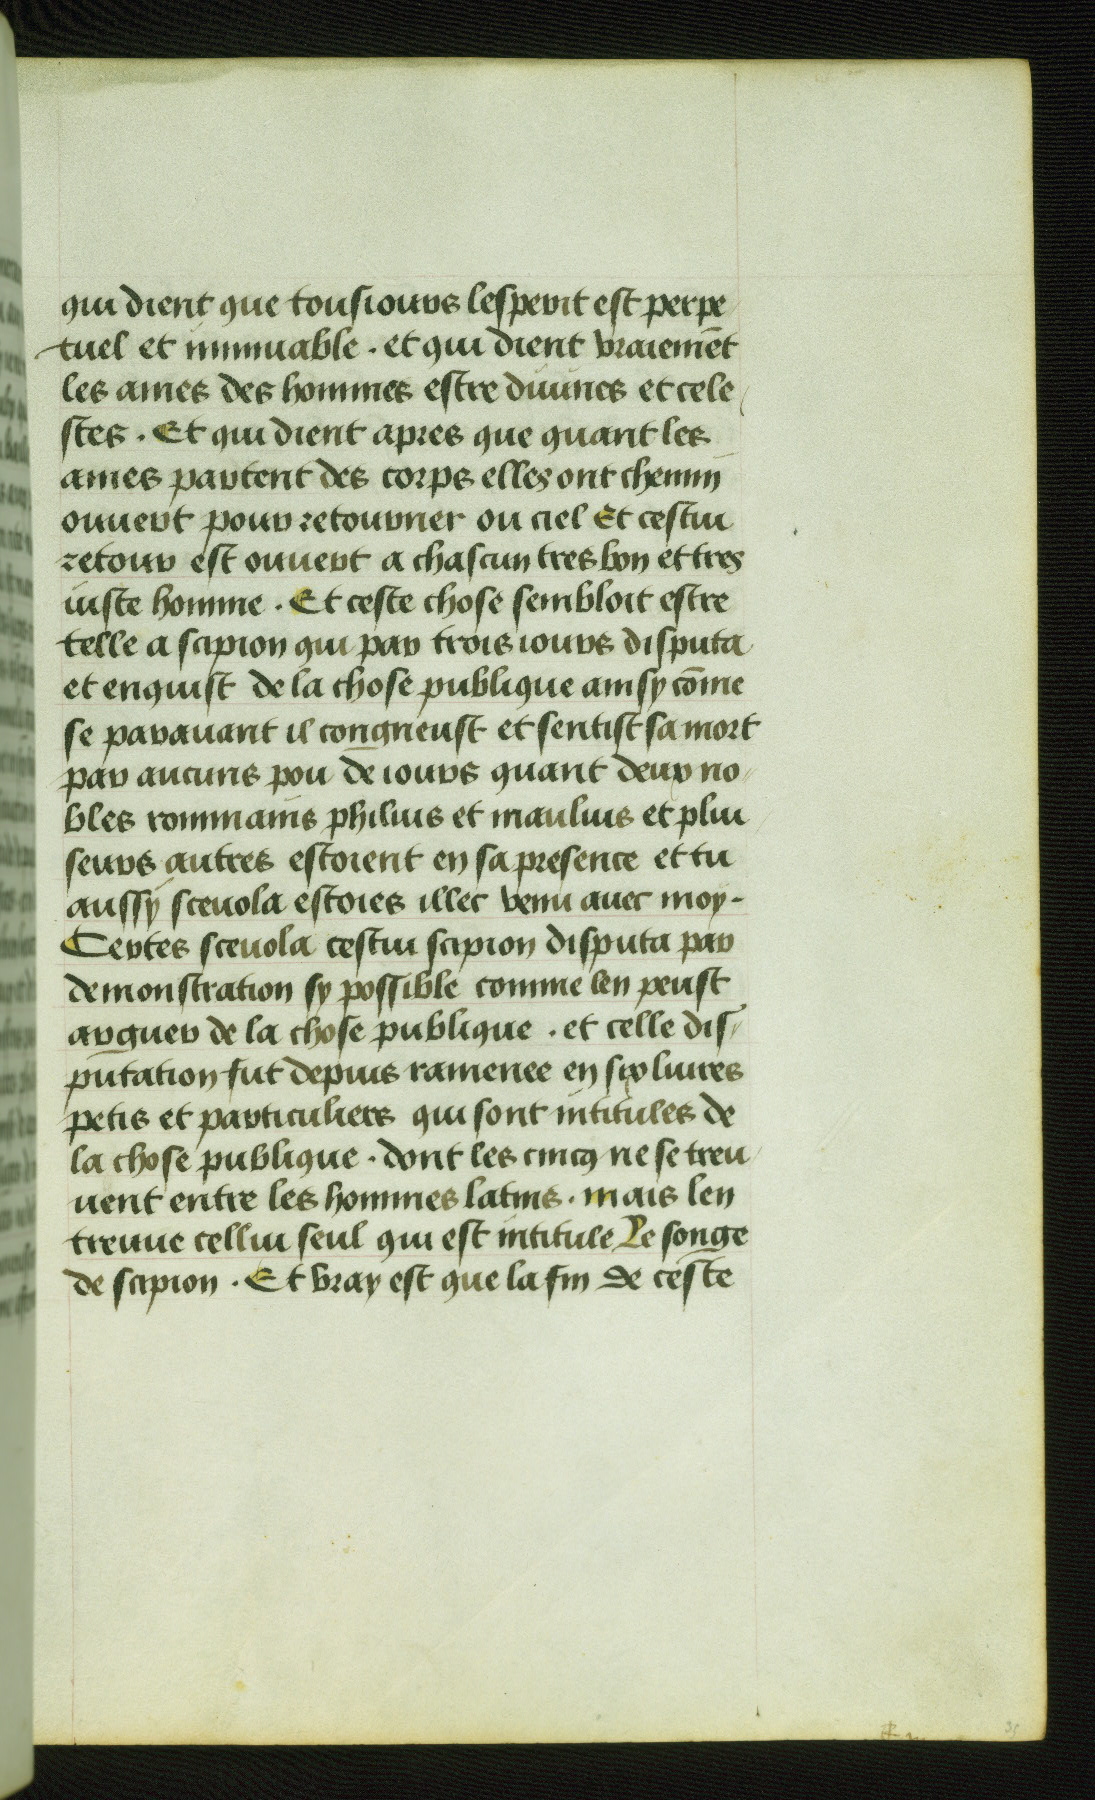 qui dient que tousiours lesperit est perpe
tuel et inmuable . et qui dient vraiemēt
les ames des hommes estre diuines et cele
stes . Et qui dient apres que quant les
ames partent des corps elles ont chemin
ouuert pour retourner ou ciel Et cestui
retour est ouuert a chascun tres bon et tres
iuste homme . Et ceste chose sembloit estre
telle a scipion qui par trois iours disputa
et enquist de la chose publique ainsy cōme
se parauant il congneust et sentist sa mort
par aucuns pou de iours quant deux no
bles rommains philius et maulius et plui
seurs autres estoient en sa presence et tu
aussy sceuola estoies illec venu auec moy .
Certes sceuola cestui scipion disputa par
demonstration sy possible comme len peust
arguer de la chose publique . et celle dis
putation fut depuis ramenee en six liures
petis et particuliers qui sont intitules de
la chose publique . dont les cincq ne se treu
uent entre les hommes latins . mais len
treuue cellui seul qui est intitule Le songe
de scipion . Et vray est que la fin de ceste